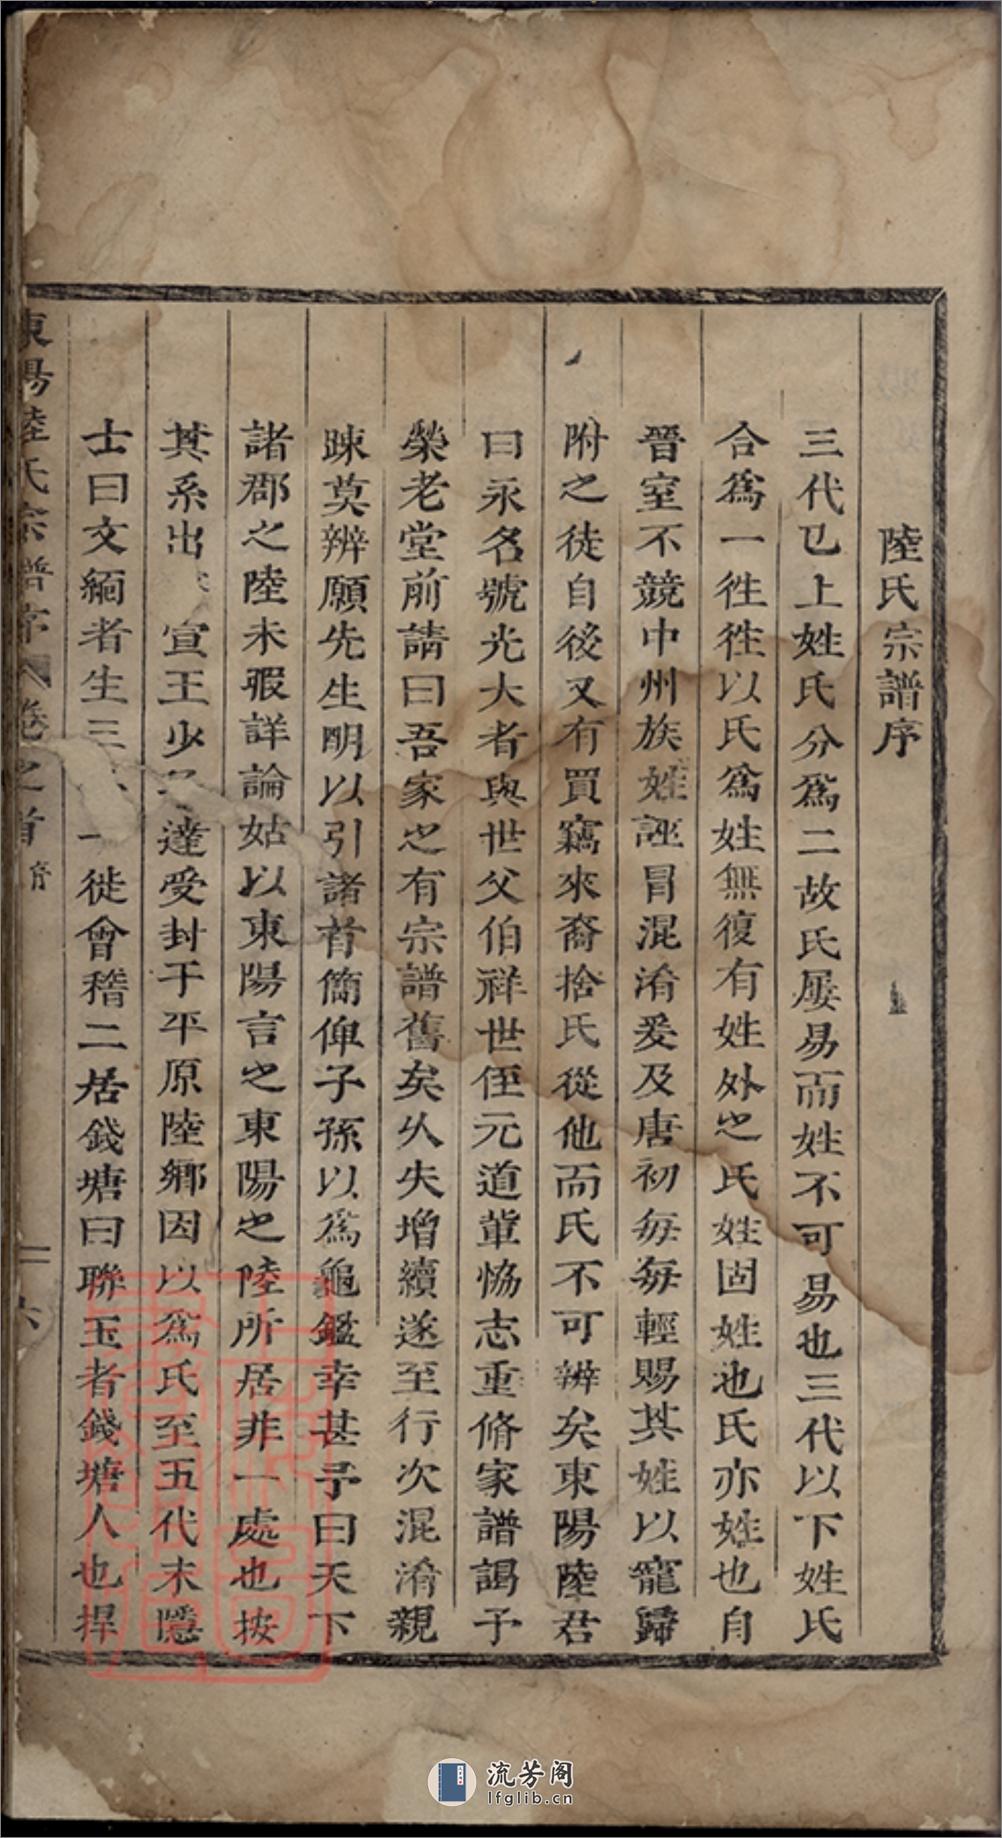 陸氏宗譜序
三代已上姓氏分爲二故氏屡易而姓不可易也三代以下姓氏
合爲一徃徃以氏爲姓無復有姓外之氏姓固姓也氏亦姓也自
晉室不競中州族姓誣冒混淆爰及唐初每每輕賜其姓以寵歸
附之徒自後又有買竊來裔捨氏從他而氏不可辨矣東陽陸君
曰永名號光大者與世父伯祥世侄元道軰恊志重脩家譜謁予
榮老堂前請曰吾家之有宗譜舊矣乆失增續遂至行次混淆親
踈莫辨願先生明以引諸首簡俾子孫以爲龜鑑幸甚予曰天下
諸郡之陸未暇詳論姑以東陽言之東陽之陸所居非一處也按
其系出 宣王少 達受封于平原陸鄉因以爲氏至五代末隱
士曰文緬者生三 一徙會稽二居錢塘曰聯玉者錢塘人也捍
東陽陸氏宗譜序 卷之首 序 六
流芳阁
lfglib.cn